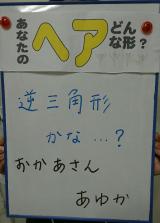 あなたの ヘア どんな形?
逆三角形
かな…?
おかあさん
あゆか